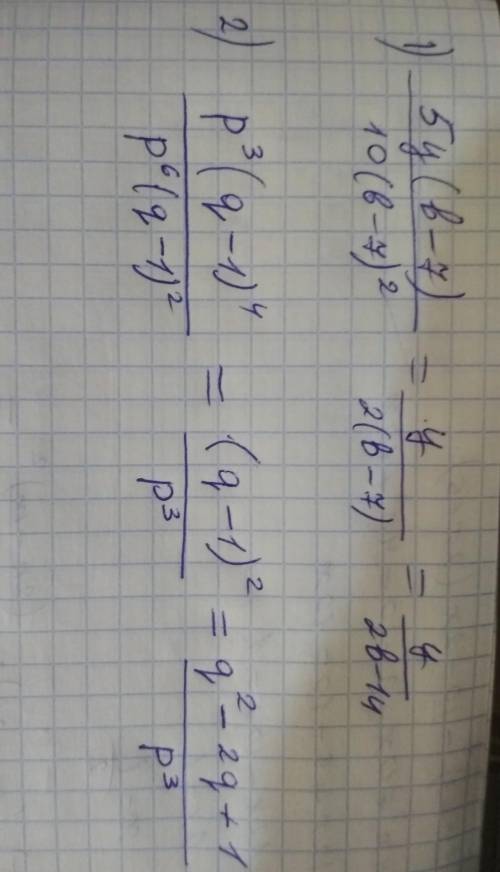 1) 5y(b-7) / 10(b-7)² = y / 2(b-7) = y / 2b-14
2) p³(q-1)⁴ / p⁶(q-1)² = (q-1)² / p³ = q²-2q+1 / p³